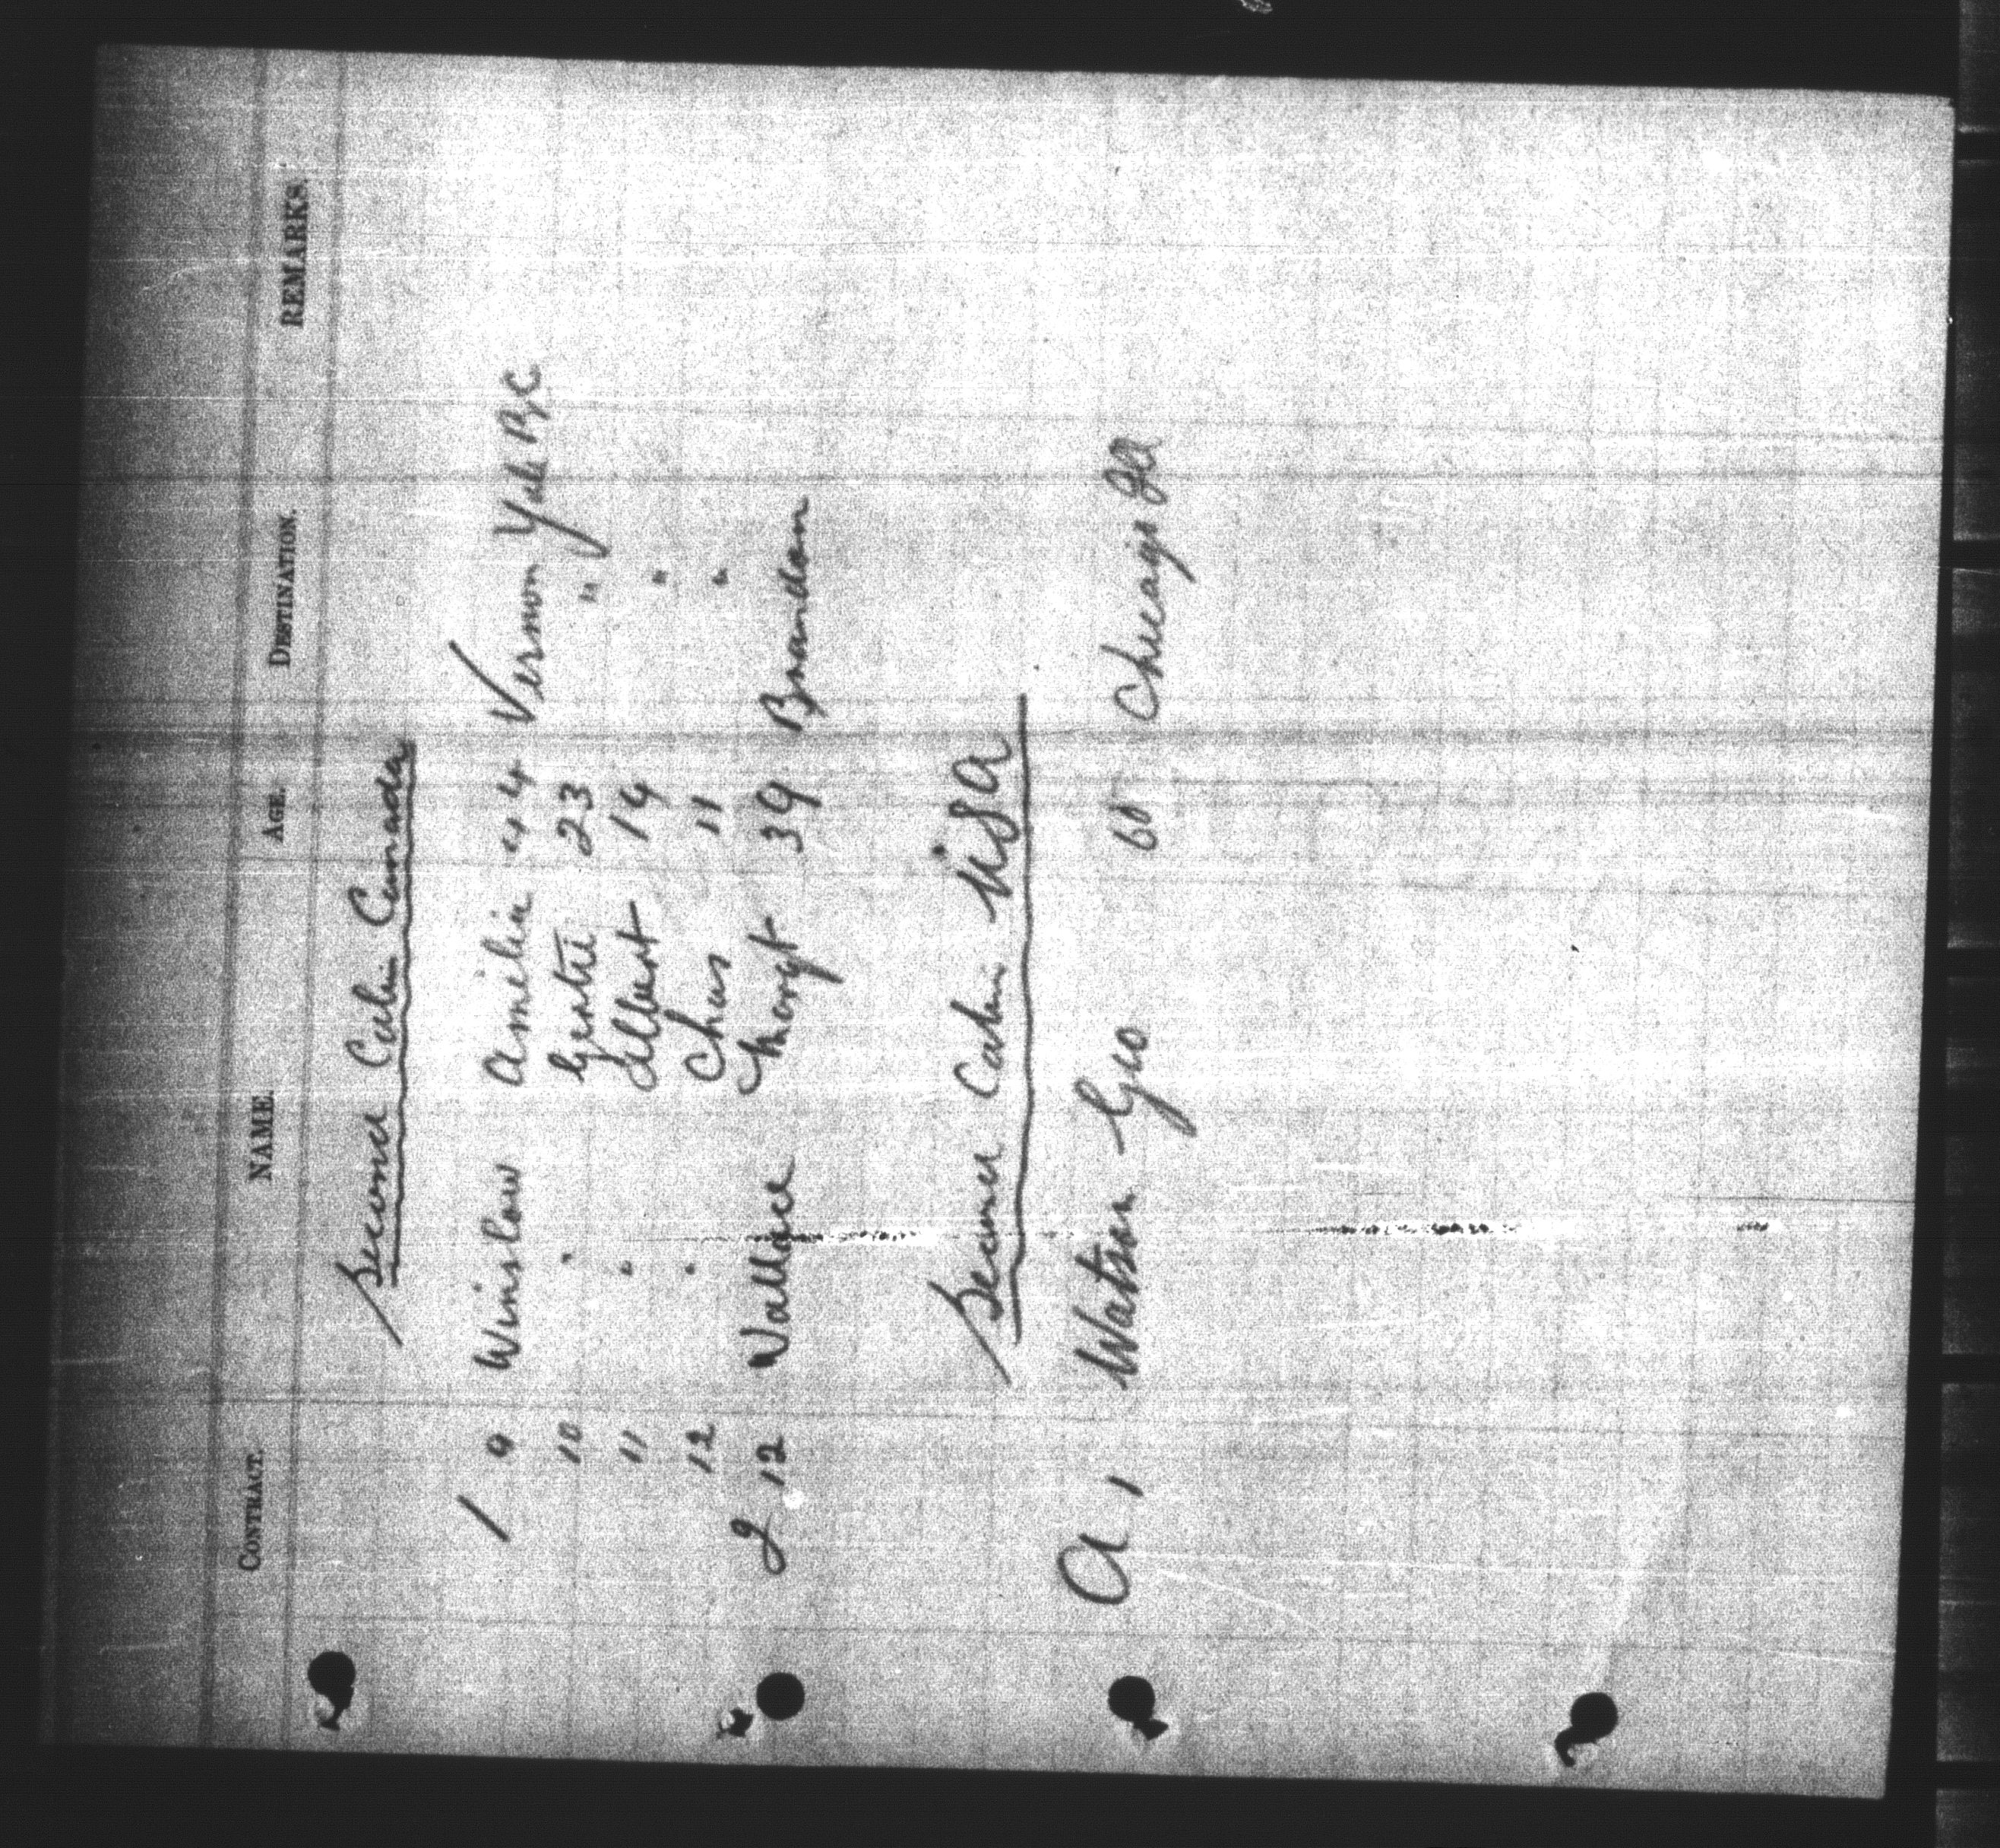 CONTRACT. NAME. AGE. DESTINATION. REMARKS.
Second Cabin Canada
1 9 Winslow Amelia 44 Vernon Yale BC
10 " Gertie 23 "
11 " Albert 14 "
12 " Chas 11 "
2 12 Wallace Margt 39 Brandon
Second Cabin USA
A 1 Watson Geo 60 Chicago Ill